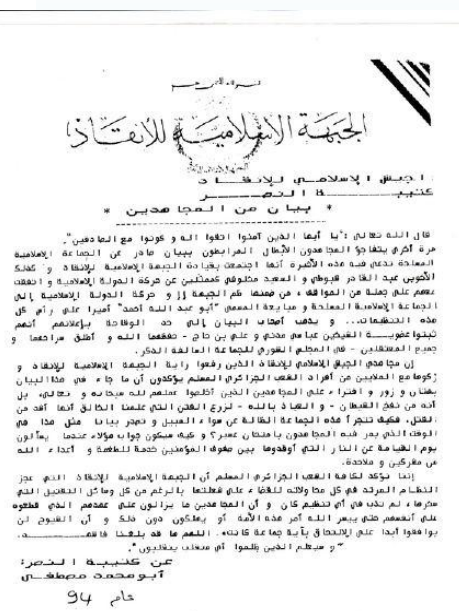 الجبهة الإسلامية للإنقاذ
الجيش الإسلامي للإنقاذ
كتيبة النصر
* بيان من المجاهدين *
قال الله تعالى :"يا أيها الذين آمنوا اتقوا الله و كونوا مع الصادقين".
مرة أخرى يتفاجؤ المجاهدون الأبطال المرابطون ببيان صادر عن الجماعة الإسلامية
المسلحة تدعي فيه هذه الأخيرة أنها اجتمعت بقيادة الجبهة الإسلامية للإنقاذ و كذلك
الأخوين عبد القادر شبوطي و السعيد مخلوفي كممثلين عن حركة الدولة الإسلامية و اتفقت
معهم على جملة من المواقف، من ضمنها ضم الجبهة و حركة الدولة الإسلامية إلى
الجماعة الإسلامية المسلحة و مبايعة المسمى "أبو عبد الله أحمد" أميرا على رأس كل
هذه التنظيمات... و يذهب أصحاب البيان إلى حد الوقاحة بإعلانهم أنهم
ثبتوا عضوية الشيخين عباسي مدني و علي بن حاج - حفظهما الله و أطلق سراحهما و
جميع المعتقلين - في المجلس الشوري للجماعة السالفة الذكر.
إن مجاهدي الجيش الإسلامي للإنقاذ الذين رفعوا راية الجبهة الإسلامية للإنقاذ و
زكوها مع الملايين من أفراد الشعب الجزائري المسلم يؤكدون أن ما جاء في هذا البيان
بهتان و زور و افتراء على المجاهدين الذين أخلصوا عملهم لله سبحانه و تعالى، بل
أنه من نفخ الشيطان - و العياذ بالله - لزرع الفتن التي علمنا الخالق أنها أشد من
القتل. فكيف تتجرأ هذه الجماعة الضالة عن سواء السبيل و تصدر بيانا مثل هذا في
الوقت الذي يمر فيه المجاهدون بامتحان عسير؟ و كيف سيكون جواب هؤلاء عندما يسألون
يوم القيامة عن النار التي أوقدوها بين صفوف المؤمنين خدمة للطغمة و أعداء الله
من مشركين و ملاحدة.
إننا نؤكد لكافة الشعب الجزائري المسلم أن الجبهة الإسلامية للإنقاذ التي عجز
النظام المرتد في كل محاولاته للقضاء على شعلتها بالرغم من كل وسائل التقتيل التي
سخرها، لم تذب في أي تنظيم كان و أن المجاهدين ما يزالون على عهدهم الذي قطعوه
على أنفسهم حتى ييسر الله أمر هذه الأمة أو يهلكون دون ذلك و أن الشيوخ لن
يوافقوا أبدا على الالتحاق بأية جماعة كانت. اللهم ما قد بلغنا فاشهد.
"و سيعلم الذين ظلموا أي منقلب ينقلبون".
عن كتيبة النصر:
أبو محمد مصطفى
عام 94